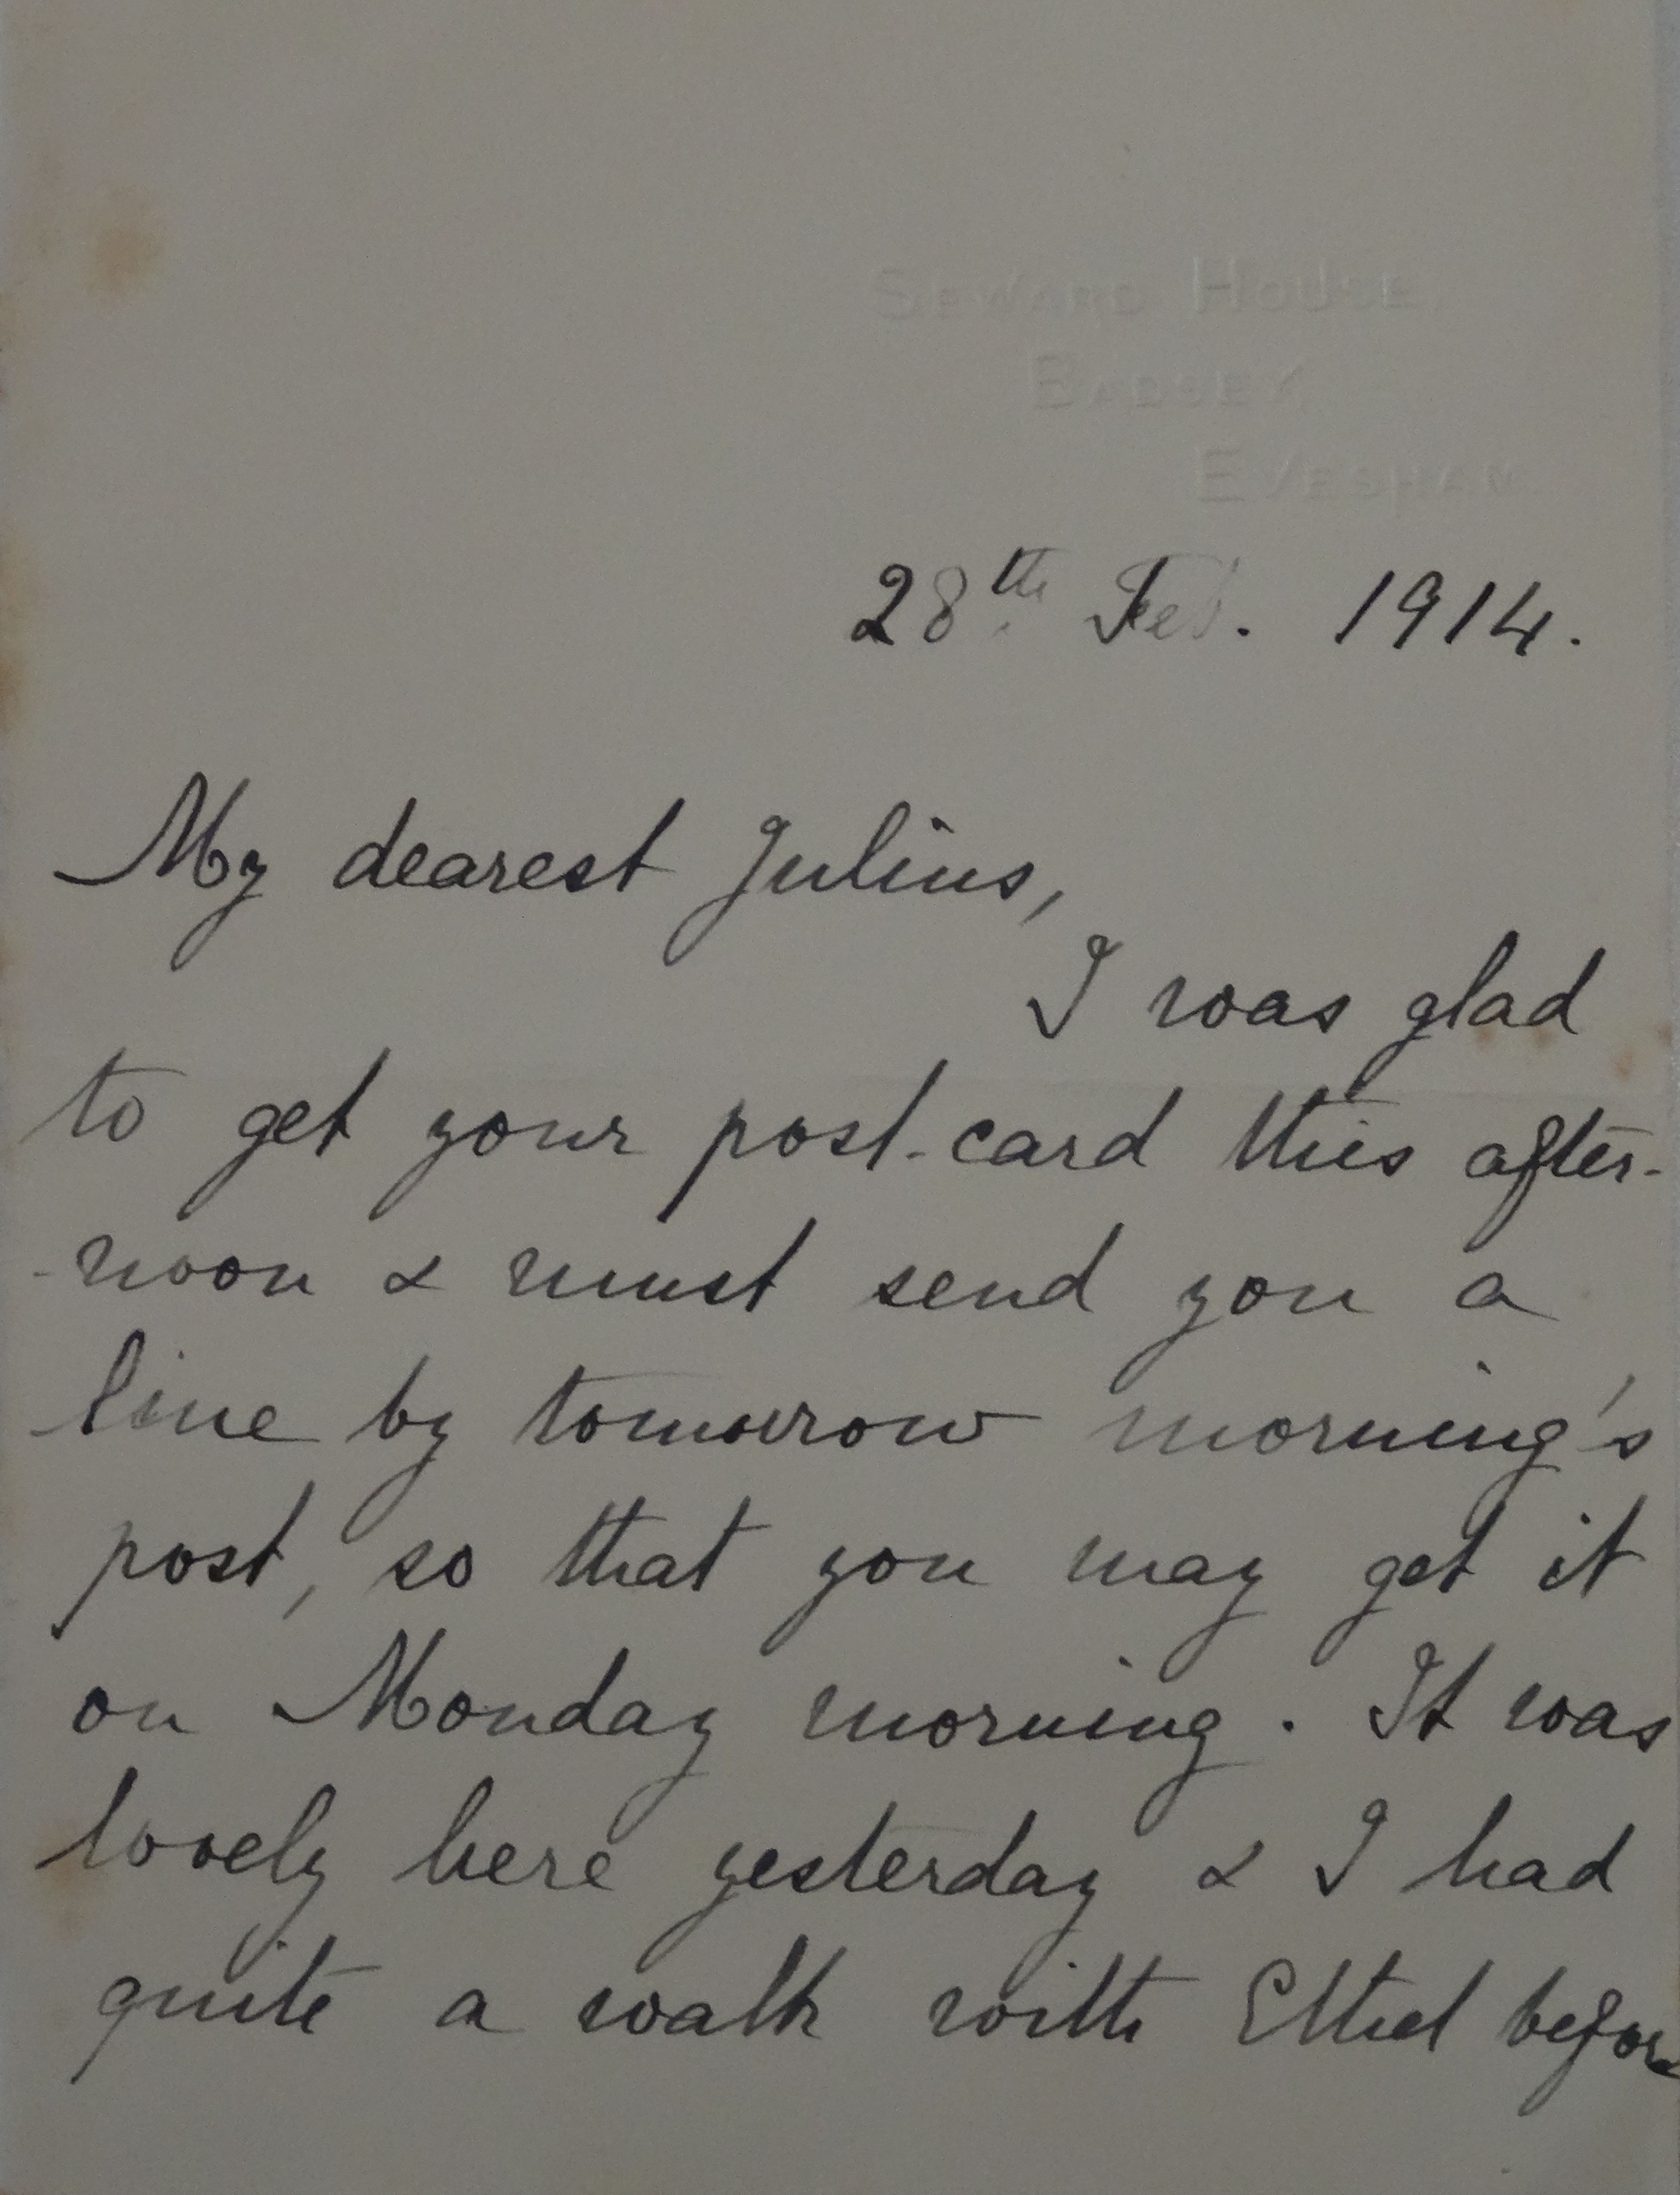 SEWARD HOUSE,
BADSEY,
EVESHAM.
28th. Feb. 1914.
My dearest Julius,
I was glad
to get your post-card this after-
-noon & must send you a
line by tomorrow morning's
post, so that you may get it
on Monday morning. It was
lovely here yesterday & I had
quite a walk with Ethel before